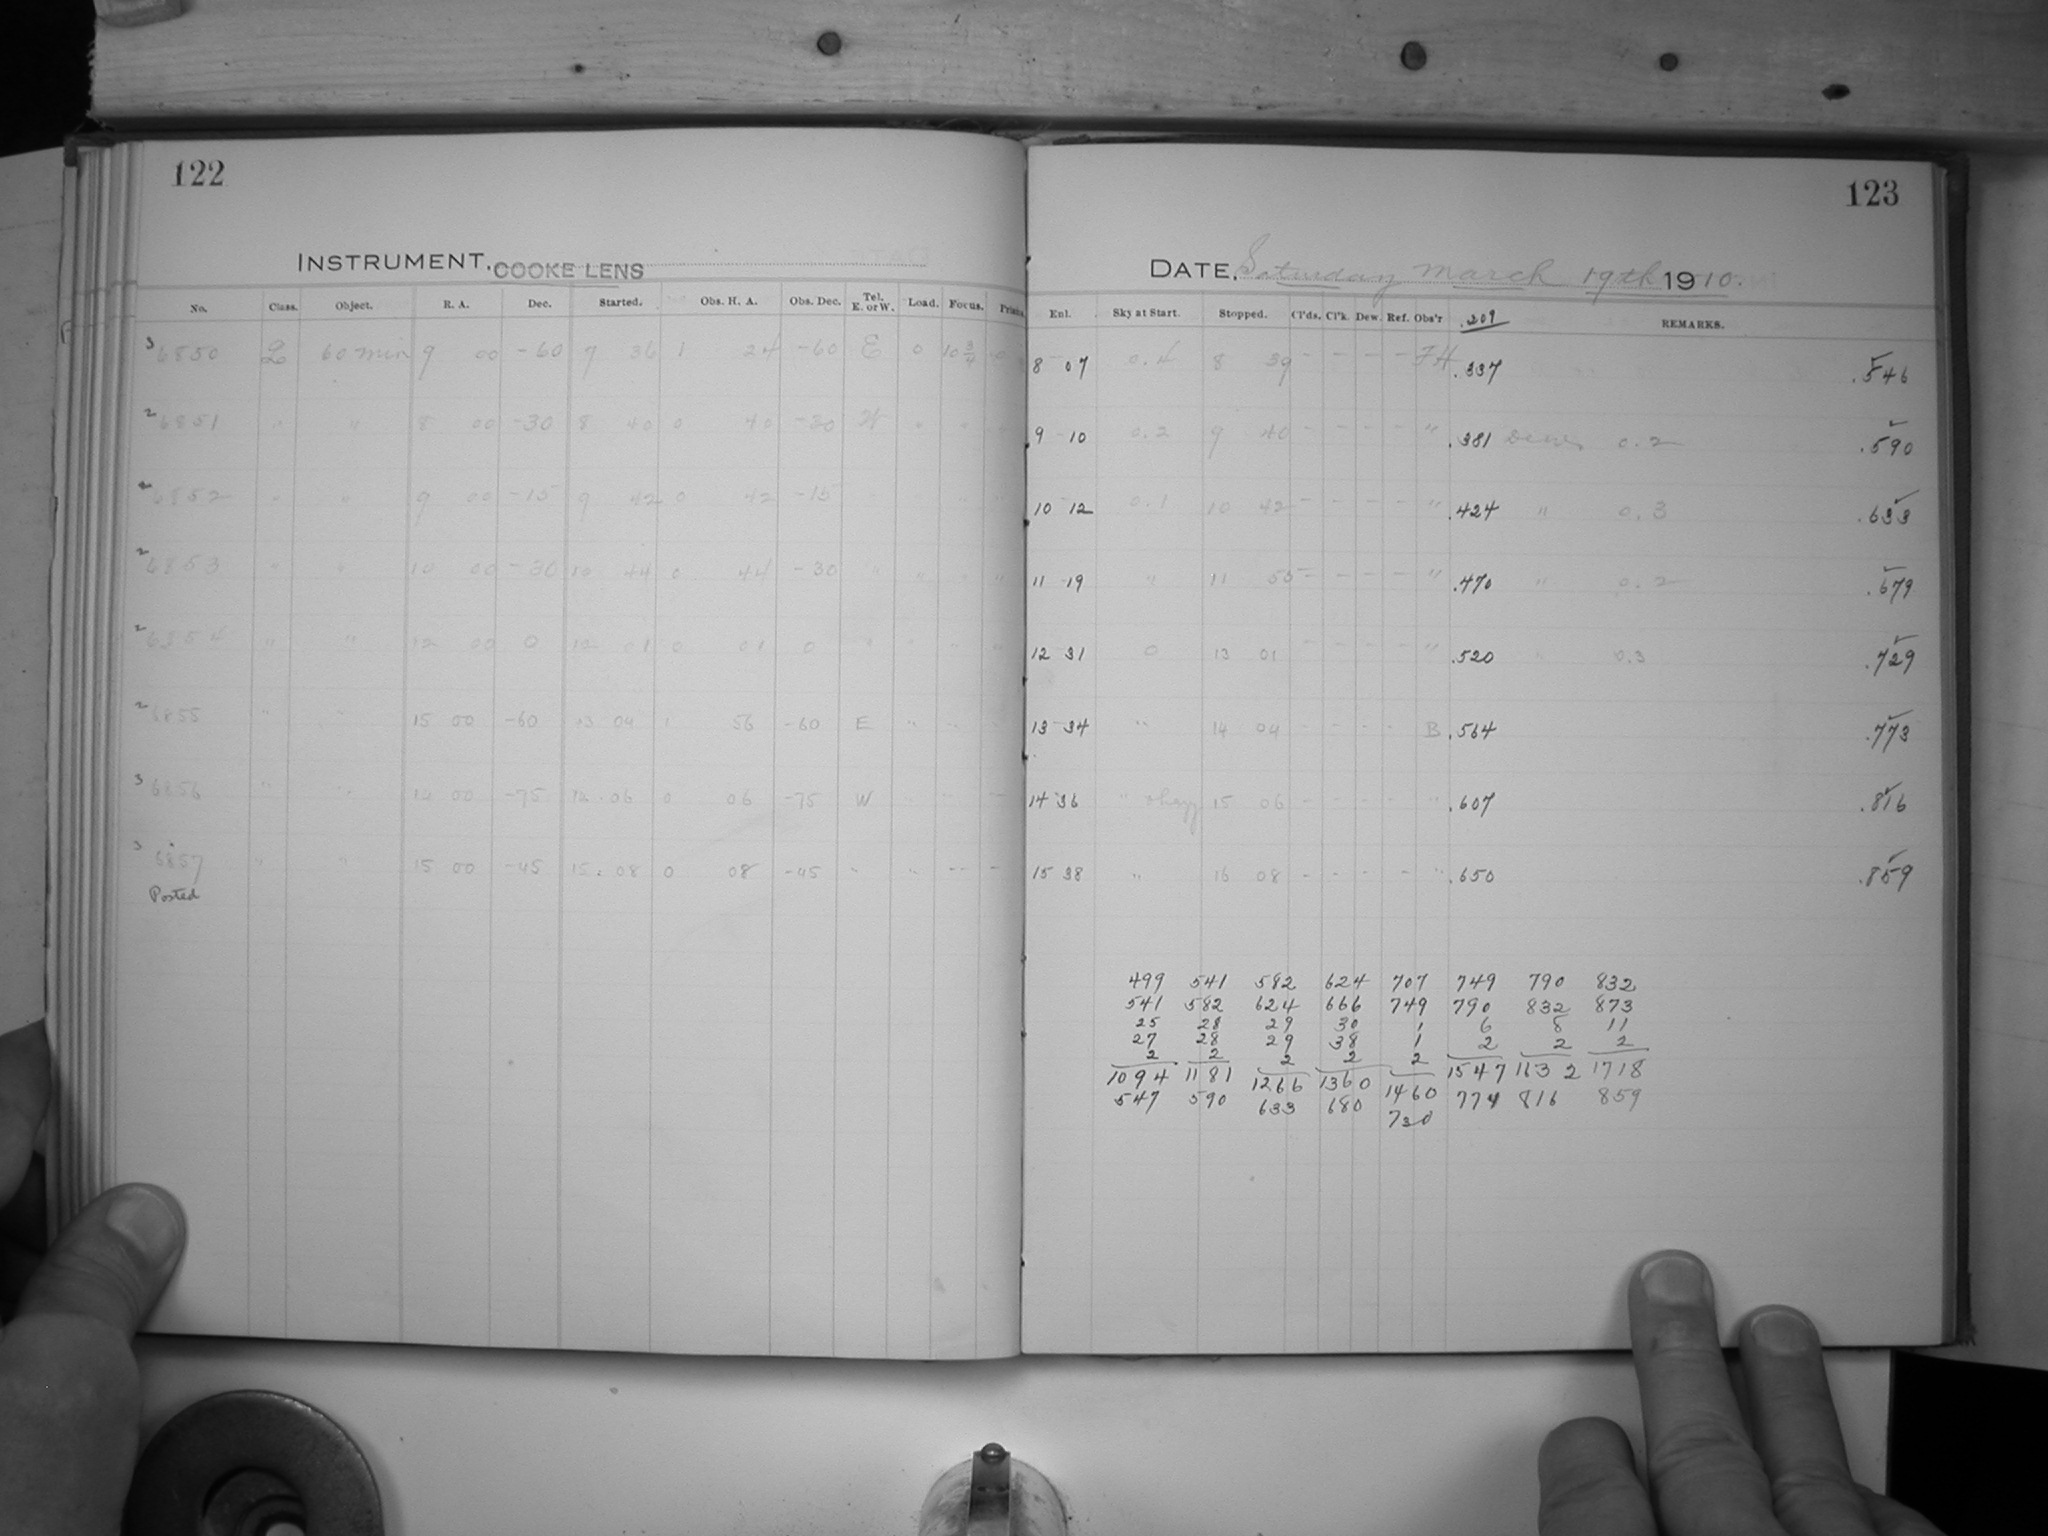 122
INSTRUMENT. COOKE LENS
No. Class. Object. R. A. Dec. Started. Obs. H. A. Obs. Dec. Tel. E. or W. Load. Focus.
3 6850 L 60 min 9 00 -60 9 36 1 24 -60 E 0 10 3/4
2 6851 " " 8 00 -30 8 40 0 40 -30 W "
2 6852 " " 9 00 -15 9 42 0 42 -15
2 6853 " " 10 00 -30 10 44 0 44 -30 " " " "
2 6854 " " 12 00 0 12 01 0 01 0 " " " "
2 6855 " " 15 00 -60 13 04 1 56 -60 E " "
3 6856 " " 14 00 -75 14 06 0 06 -75 W
3 6857 " " 15 00 -45 15 08 0 08 -45 " "
Posted
123
DATE, Saturday March 19th 1910.
Enl. Sky at Start. Stopped. Cl'ds. Cl'k. Dew. Ref. Obs'r .209 REMARKS.
8 07 0.4 8 39 - - - - FH .337 .546
9 10 0.2 9 40 - - - - " .381 Dew 0.2 .590
10 12 0.1 10 42 - - - - " .424 " 0.3 .633
11 19 " 11 55 - - - - " .470 " 0.2 .679
12 31 0 13 01 - - - - " .520 " 0.3 .729
13 34 " 14 04 - - - - B .564 .773
14 36 " 15 06 - - - - " .607 .816
15 38 " 16 08 - - - - " .650 .859
499 541 582 624 707 749 790 832
541 582 624 666 749 790 832 873
25 28 29 30 1 6 8 11
27 28 29 38 1 2 2 2
2 2 2 2 2
1094 1181 1266 1360 1460 1547 1632 1718
547 590 633 680 730 774 816 859